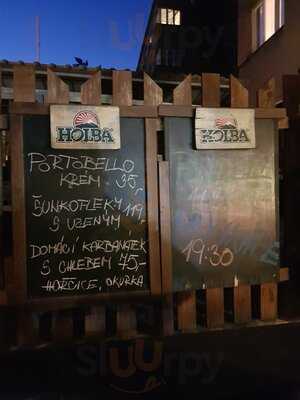 HOLBA
PORTOBELLO
KRÉM 35,
ŠUNKOFLEKY 119,-
S UZENÝM
DOMÁCÍ KARBANÁTEK
S CHLEBEM 75,-
HOŘČICE, OKURKA
HOLBA
19:30
sluurpy